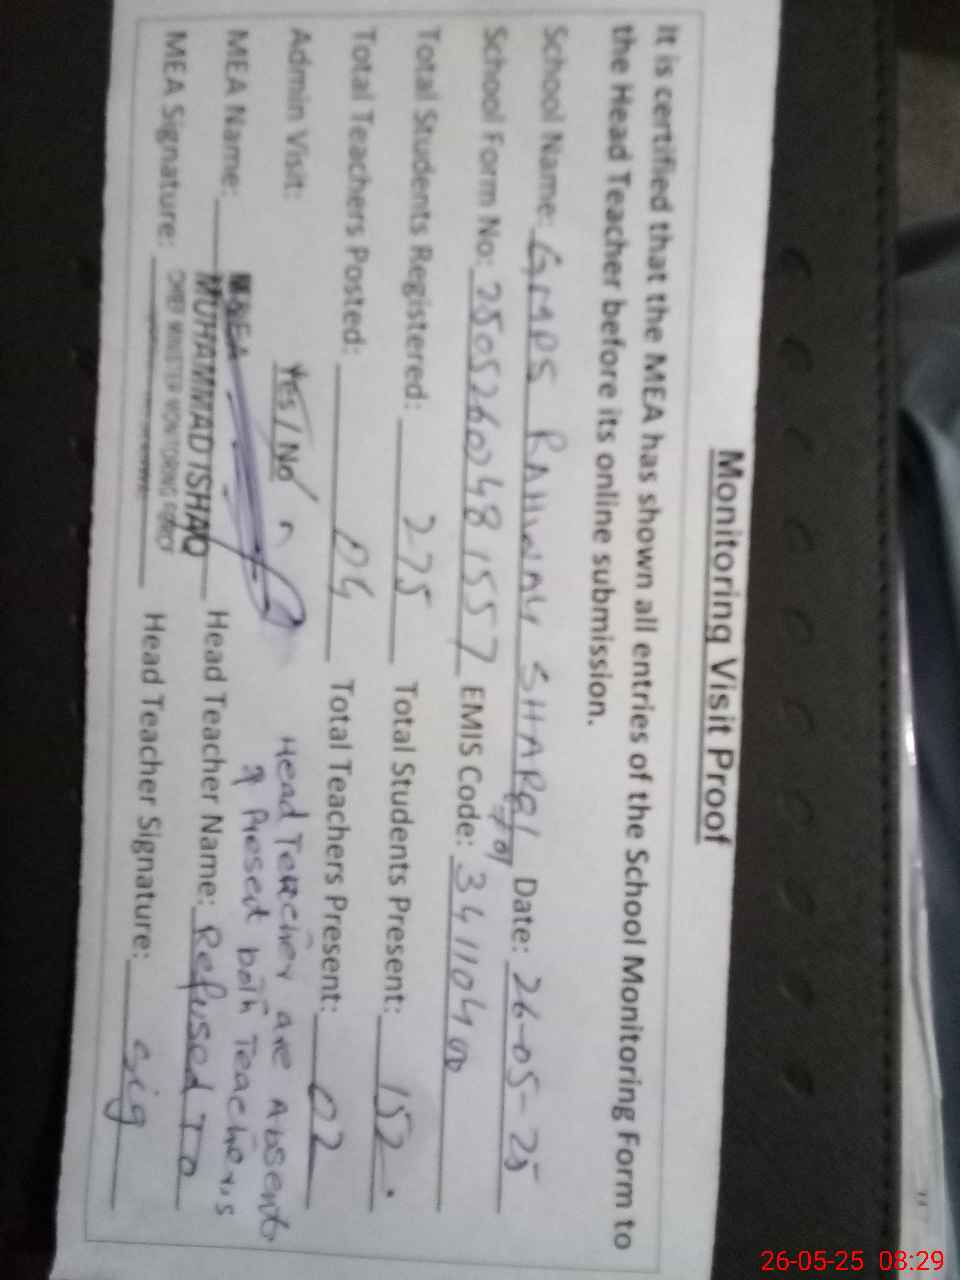 Monitoring Visit Proof
It is certified that the MEA has shown all entries of the School Monitoring Form to
the Head Teacher before its online submission.
School Name: GMPS RAHWALI SHARQI Date: 26-05-25
School Form No: 2505260481557 EMIS Code: 34110400
Total Students Registered: 275 Total Students Present: 152
Total Teachers Posted: 04 Total Teachers Present: 02
Admin Visit: Yes / No Head Teacher are Absent
& Present both Teachers
MEA Name: MEA Head Teacher Name: Refused To
MUHAMMAD ISHAQ
MEA Signature: CHIEF MINISTER MONITORING FORCE Head Teacher Signature: sig
26-05-25 08:29